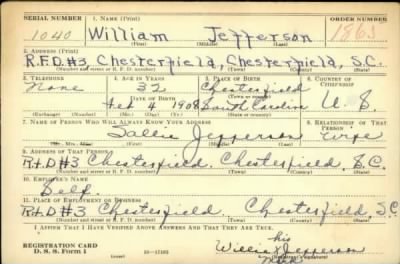 SERIAL NUMBER 1. NAME (Print) ORDER NUMBER
1040 William Jefferson 1863
(First) (Middle) (Last)
2. ADDRESS (Print)
R.F.D.#3, Chesterfield, Chesterfield, S.C.
(Number and street or R. F. D. number) (Town) (County) (State)
3. TELEPHONE 4. AGE IN YEARS 5. PLACE OF BIRTH 6. COUNTRY OF CITIZENSHIP
None 32 Chesterfield
DATE OF BIRTH (Town or county)
Feb 4 1908 South Carolina U. S.
(Exchange) (Number) (Mo.) (Day) (Yr.) (State or country)
7. NAME OF PERSON WHO WILL ALWAYS KNOW YOUR ADDRESS 8. RELATIONSHIP OF THAT PERSON
Sallie Jefferson wife
(Mr., Mrs., Miss) (First) (Middle) (Last)
9. ADDRESS OF THAT PERSON
R.F.D#3 Chesterfield. Chesterfield. S.C.
(Number and street or R. F. D. number) (Town) (County) (State)
10. EMPLOYER'S NAME
Self.
11. PLACE OF EMPLOYMENT OR BUSINESS
R.F.D#3 Chesterfield. Chesterfield, S.C.
(Number and street or R. F. D. number) (Town) (County) (State)
I AFFIRM THAT I HAVE VERIFIED ABOVE ANSWERS AND THAT THEY ARE TRUE.
his
REGISTRATION CARD Willie x Jefferson
D. S. S. Form 1 (Registrant's signature)
mark